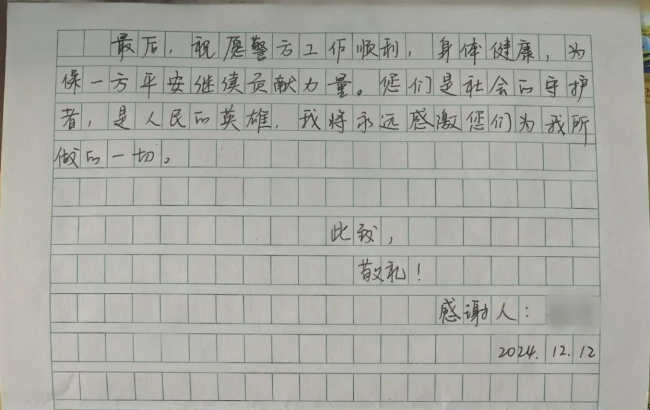 最后，祝愿警方工作顺利，身体健康，为
保一方平安继续贡献力量。您们是社会的守护
者，是人民的英雄，我将永远感激您们为我所
做的一切。
此致，
敬礼！
感谢人：
2024.12.12